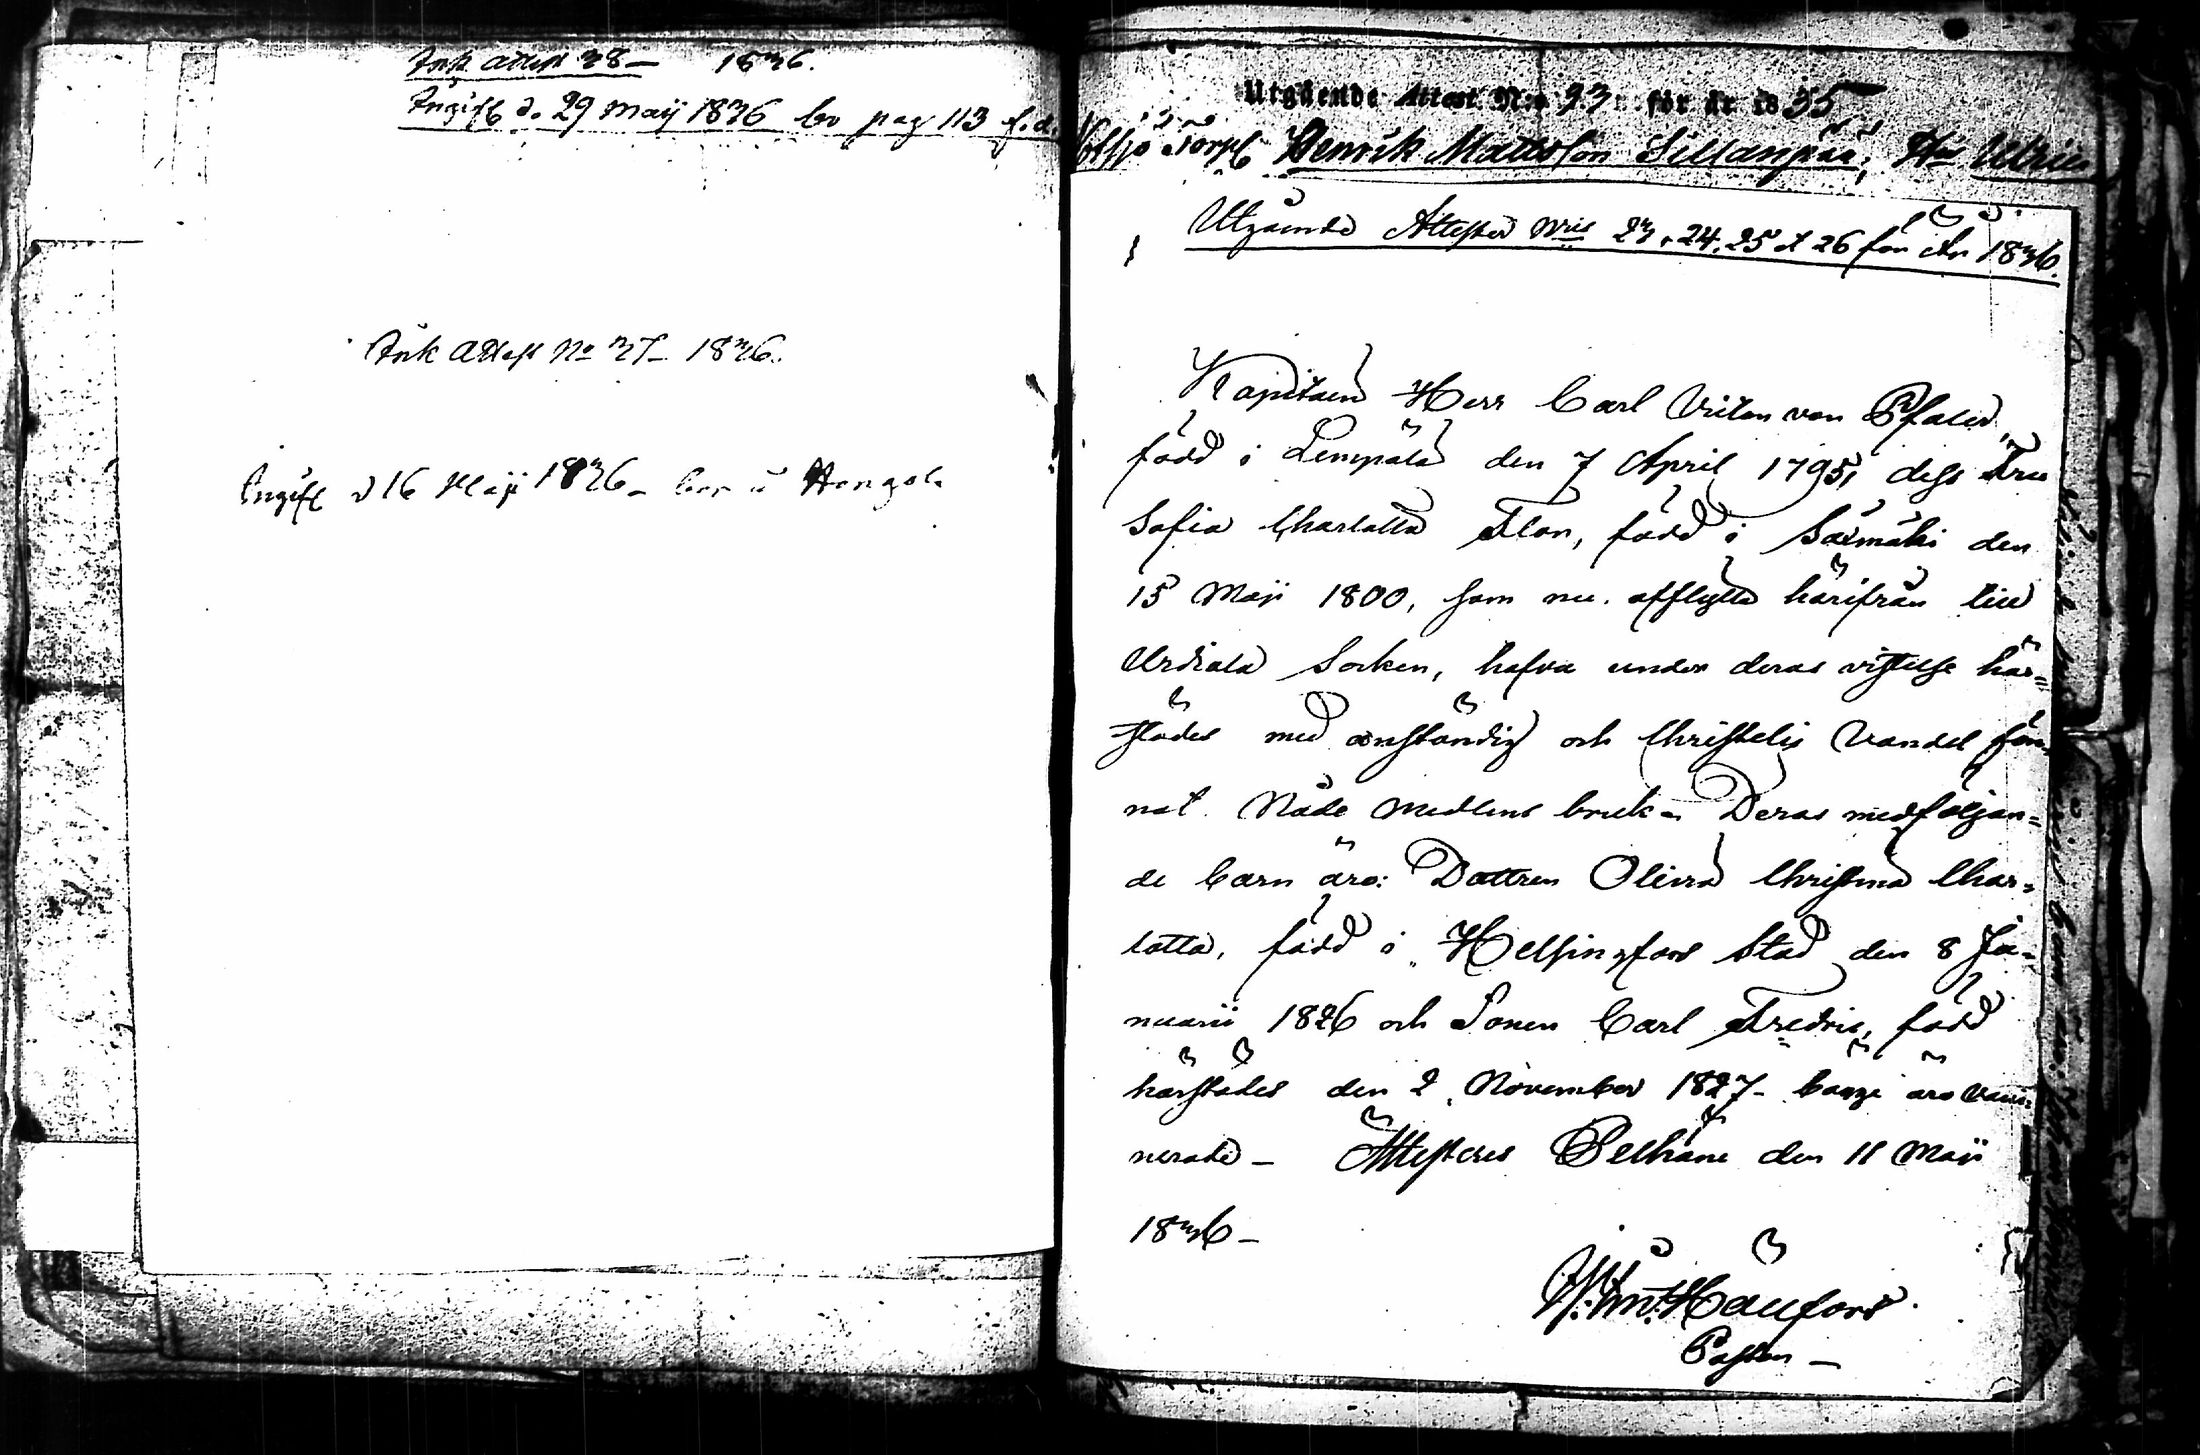 Ink attest 38 – 1836.
Ingift d. 29 Maij 1836 bo pag 113
Ink attest No 37 – 1836.
Ingift d 16 Maji 1836 – bor i
Utgående Attest N:o 93 för år 1835,
Torp Henrik Mattsson Sillanpää; Hu Ulrica
Utgående Attester Nris 23, 24, 25 & 26 för År 1836.
Kapitain Herr Carl von Pfaler
född i Lempäla den 7 April 1795, dess Fru
Sofia Charlotta Flor, född i Säxmäki den
15 Maji 1800, som nu afflytta härifrån till
Urdiala Socken, hafva under deras vistelse här=
städes med anständig och Christelig Vandel
Nåde Medlens bruk – Deras medföljan=
de barn äro: Dottren Olivia Christina Char=
lotta, född i Helsingfors Stad den 8 Ja=
nuarii 1826 och Sonen Carl Fredric, född
härstädes den 2 November 1827 – bägge äro vacci=
nerade – Attesteres Pelkäne den 11 Maji
1836 –
Pastor –